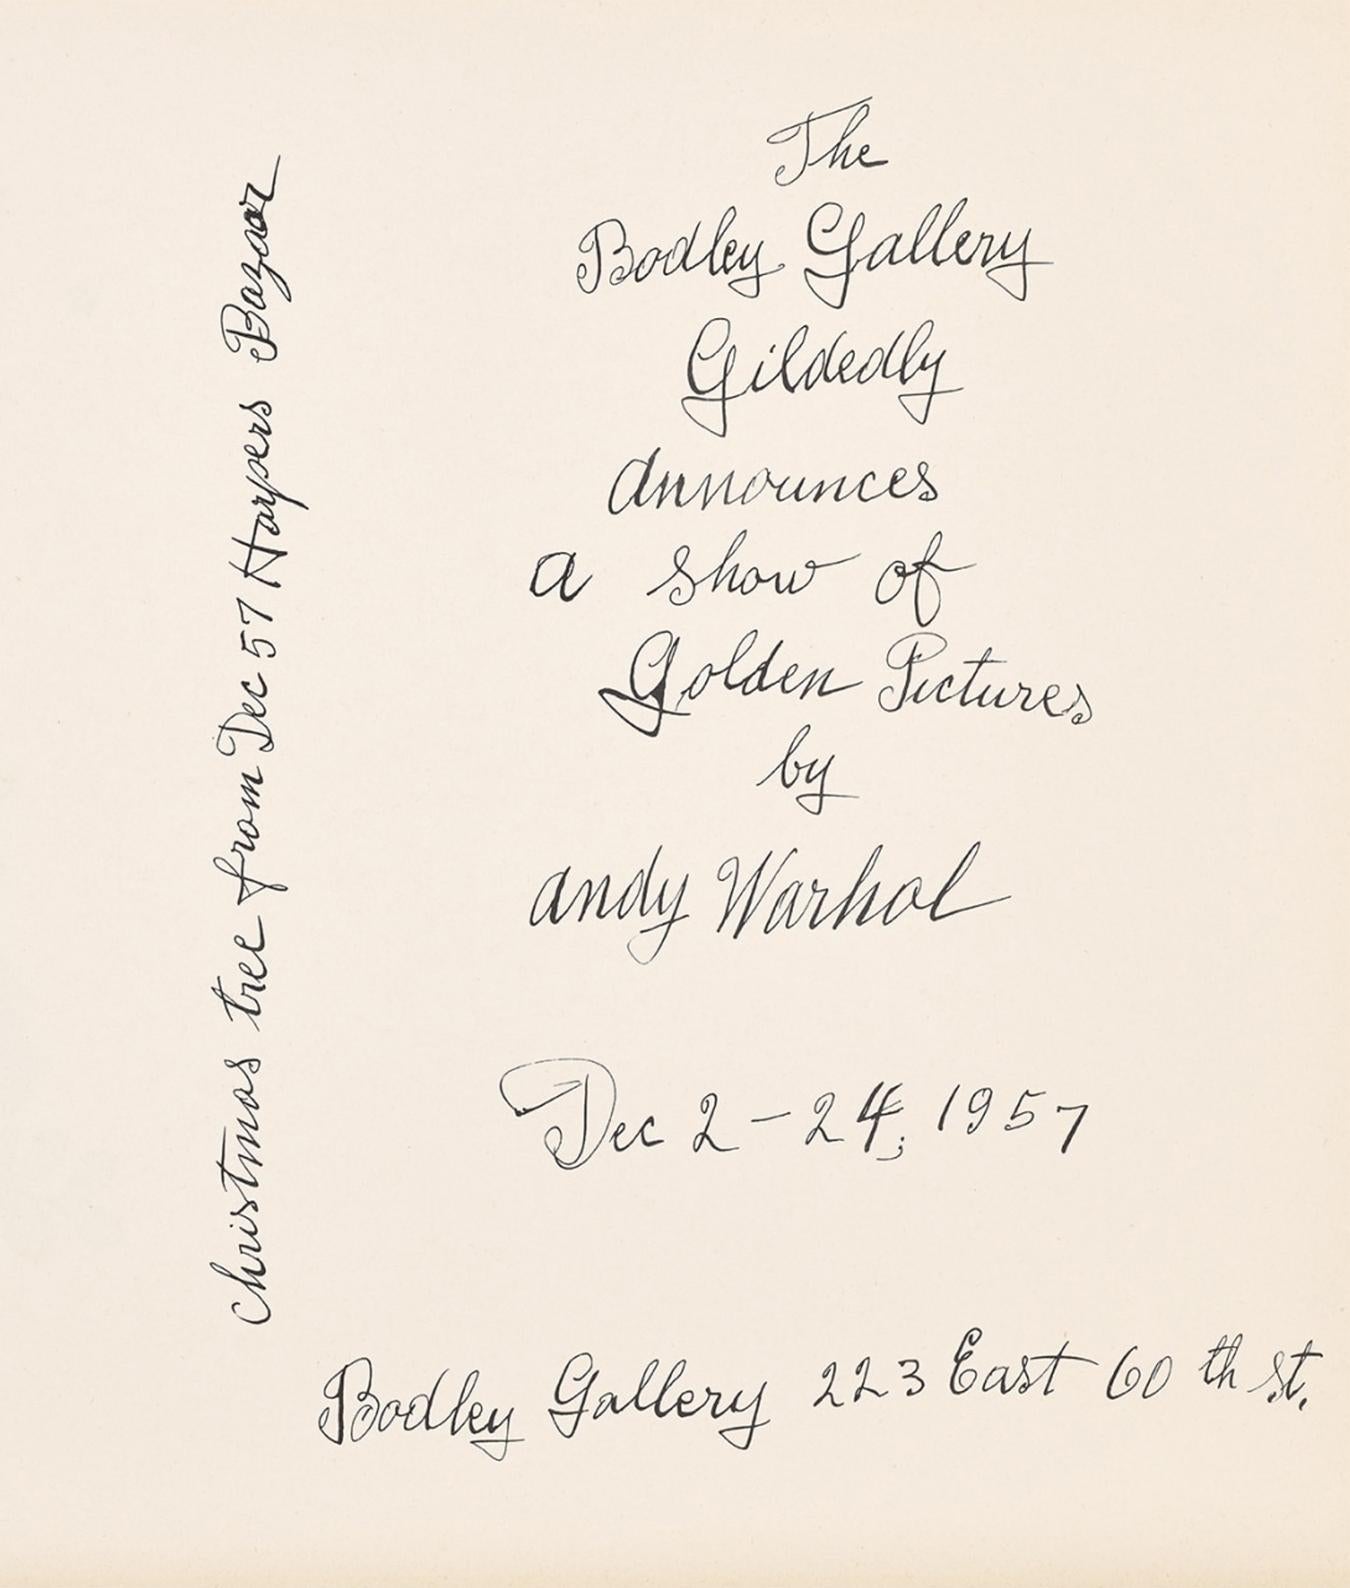 The
Bodley Gallery
Gildedly
announces
a show of
Golden Pictures
by
andy Warhol
Dec 2 - 24, 1957
Bodley Gallery 223 East 60 th st.
Christmas tree from Dec 57 Harpers Bazaar